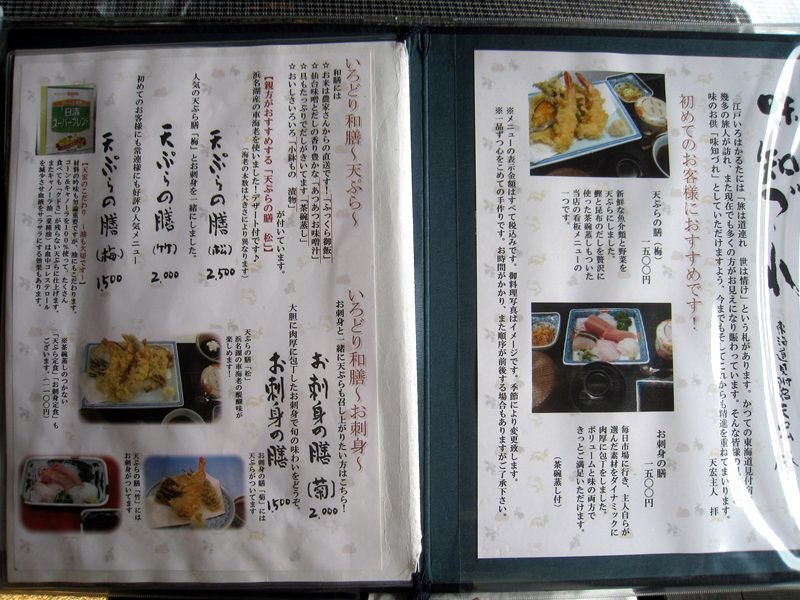 江戸いろはかるたには「旅は道連れ 世は情け」という札があります。かつての東海道見付宿
幾多の旅人が訪れ、また現在でも多くの方がお見えになり賑わっています。そんな皆様の
味のお供「味知づれ」としていただけますよう、今までもそしてこれからも精進を重ねてまいります。
天宏主人 拝
初めてのお客様におすすめです!
天ぷらの膳(梅)
一五〇〇円
新鮮な魚介類と野菜を
天ぷらにしました。
鰹と昆布のだしを贅沢に
使った茶碗蒸しもついた
当店の看板メニューの
一つです。
お刺身の膳
一五〇〇円
毎日市場に行き、主人自らが
選んだ素材をダイナミックに
肉厚に包丁しました。
ボリュームと味の両方で
きっとご満足いただけます。
(茶碗蒸し付)
※メニューの表示金額はすべて税込みです。御料理写真はイメージです。季節により変更致します。
※一品ずつ心をこめての手作りです。お時間がかかり、また順序が前後する場合もありますがご了承下さい。
いろどり和膳~天ぷら~
和膳には
☆お米は農家さんからの直送です!「ふっくら御飯」
☆仙台味噌とだしの香り豊かな「あつあつお味噌汁」
☆具もたっぷりでだしがきいてます「茶碗蒸し」
☆おいしさいろいろ「小鉢もの 漬物」
が付いています。
【親方がおすすめする「天ぷらの膳 松」】
浜名湖産の車海老を使いました!デザート付です♪
(海老の本数は大きさにより異なります)
天ぷらの膳(松) 2,500
人気の天ぷら膳「梅」とお刺身を一緒にしました。
天ぷらの膳(竹) 2,000
初めてのお客様にも常連様にも好評の人気メニュー
天ぷらの膳(梅) 1500
日清
スーパーブレンド
【天宏のこだわり・・・油も大切です!】
材料の吟味も勿論重要ですが、油にもこだわります。
いろどり和膳~お刺身~
お刺身と一緒に天ぷらも召し上がりたい方はこちら!
お刺身の膳(菊) 2,000
大胆に肉厚に包丁したお刺身で旬の味わいをどうぞ。
お刺身の膳 1500
天ぷらの膳「松」には
浜名湖の車海老の醍醐味が
楽しめます!
※茶碗蒸しのつかない
「天ぷら定食」「お刺身定食」も
ございます。(一一〇〇円)
お刺身の膳「菊」には
天ぷらがついてます
天ぷらの膳「竹」には
お刺身がついてます